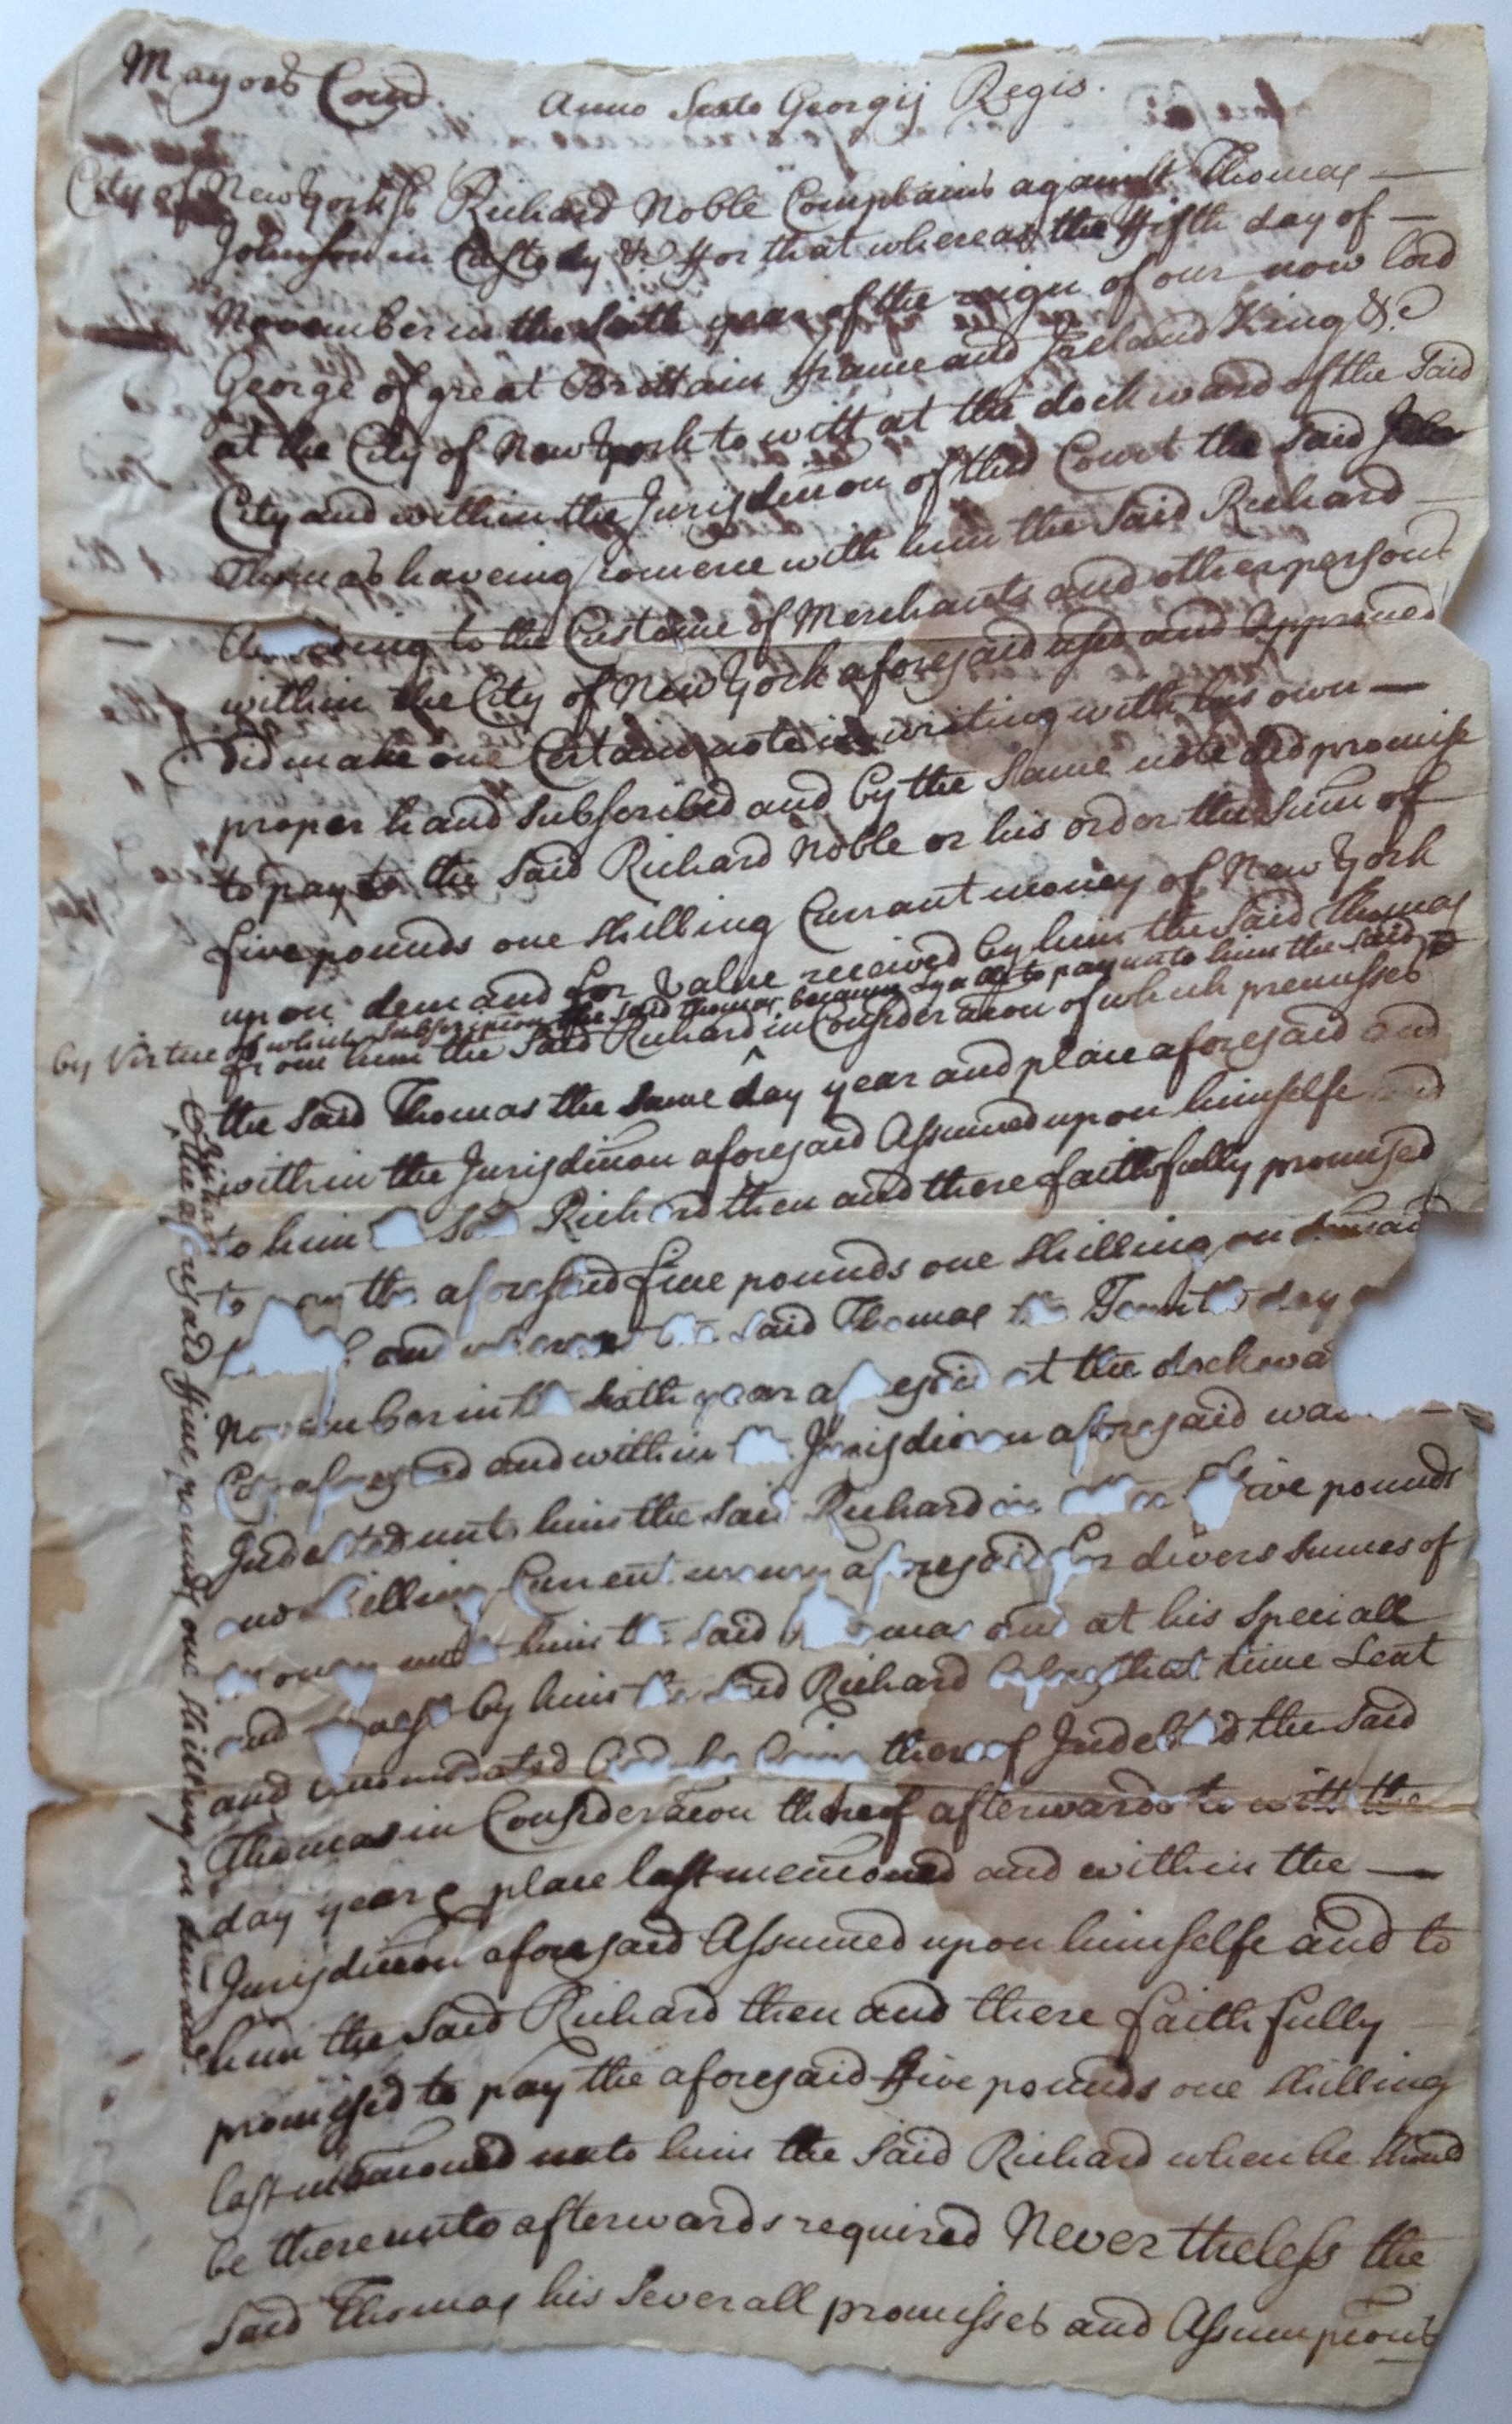 Mayors Court.
Anno Sexto Georgij Regis.
City of New York ss Richard Noble Complains against Thomas
Johnson in Custody &c ffor that whereas the ffifth day of
November in the Sixth year of the reign of our now lord
George of great Brittain ffrance and Ireland King &c
at the City of New York to witt at the dock ward of the Said
City and within the Jurisdiccon of this Court the Said
Thomas haveing comerce with him the Said Richard
to the Custome of Merchants and other persons
within the City of New York aforesaid used and Approved
did make one Certain note in writing with his own
proper hand Subscribed and by the Same note did promise
to pay to the Said Richard Noble or his order the Sum of
five pounds one Shilling Currant money of New York
upon demand for value received by him the Said Thomas
by Virtue of which Subscription the Said Thomas became lyable to pay unto him the Said
from him the Said Richard in Consideracon of which premisses
Richard
the aforesaid ffive pounds one Shilling on demand
the Said Thomas the Same day year and place aforesaid and
within the Jurisdiccon aforesaid Assumed upon himselfe and
to him Richard then and there faithfully promised
to the aforesaid five pounds one Shilling on demand
and Said Thomas day
November in Sixth year at the dockwa
aforesaid and within Jurisdiccon aforesaid was
Indebted unto him the Said Richard in ive pounds
one illing Current money aforesaid for divers Sumes of
money unto him the Said mas and at his Speciall
and by him the Said Richard before that time Lent
and accomodated And he being thereof Indebted the Said
Thomas in Consideracon thereof afterwards to witt the
day year & place last mencioned and within the
Jurisdiccon aforesaid Assumed upon himselfe and to
him the Said Richard then and there faithfully
promised to pay the aforesaid ffive pounds one Shilling
last mencioned unto him the Said Richard when he Should
be thereunto afterwards required Nevertheless the
Said Thomas his Severall promisses and Assumpcons